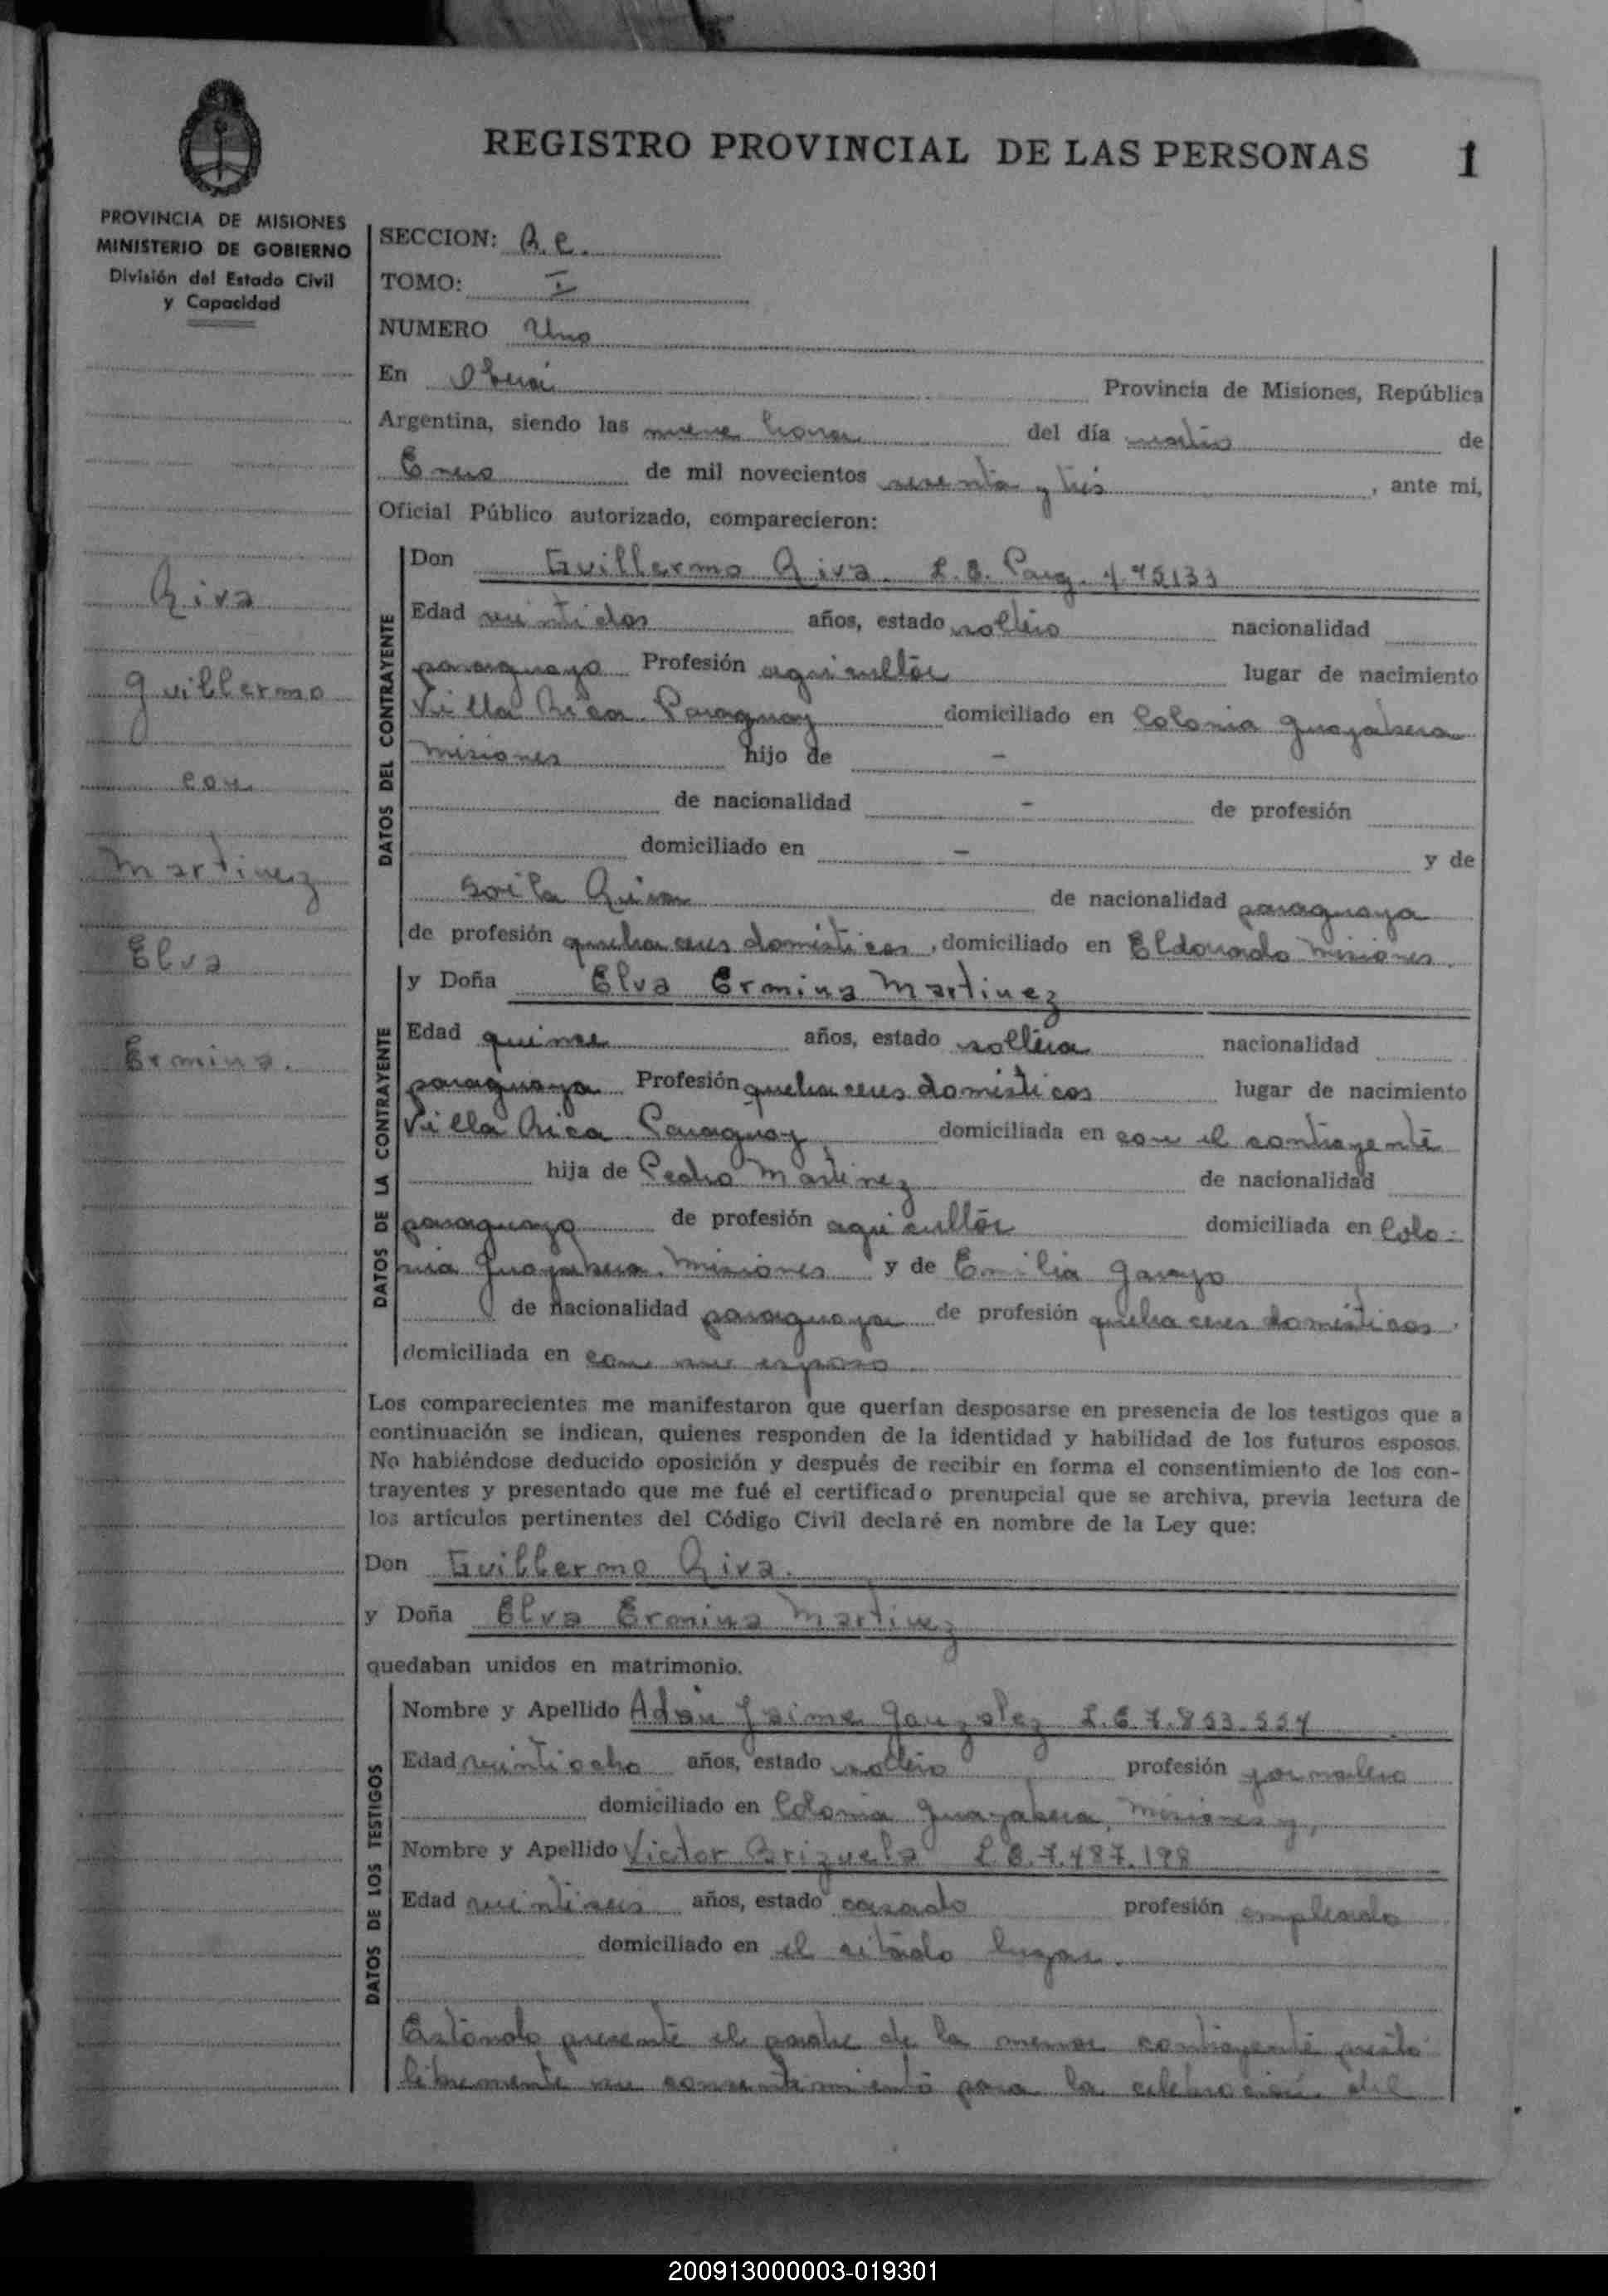 REGISTRO PROVINCIAL DE LAS PERSONAS 1
PROVINCIA DE MISIONES
MINISTERIO DE GOBIERNO
División del Estado Civil
y Capacidad
Riva
Guillermo
con
Martinez
Elva
Ermina.
SECCION:
TOMO: I
NUMERO Uno
En Oberá Provincia de Misiones, República
Argentina, siendo las nueve horas del día de
Enero de mil novecientos sesenta y tres, ante mí,
Oficial Público autorizado, comparecieron:
DATOS DEL CONTRAYENTE
Don Guillermo Riva. Parg.
Edad veintidos años, estado soltero nacionalidad
paraguayo Profesión agricultor lugar de nacimiento
Villa Rica. Paraguay domiciliado en Colonia Guayabera
Misiones hijo de -
de nacionalidad - de profesión
domiciliado en - y de
Soila Riva de nacionalidad paraguaya
de profesión quehaceres domésticos, domiciliado en Eldorado Misiones.
DATOS DE LA CONTRAYENTE
y Doña Elva Ermina Martinez
Edad quince años, estado soltera nacionalidad
paraguaya Profesión quehaceres domésticos lugar de nacimiento
Villa Rica. Paraguay domiciliada en con el contrayente
hija de Pedro Martinez de nacionalidad
paraguayo de profesión agricultor domiciliada en Colo-
nia Guayabera. Misiones y de Emilia
de nacionalidad paraguaya de profesión quehaceres domésticos.
domiciliada en con su esposo
Los comparecientes me manifestaron que querían desposarse en presencia de los testigos que a
continuación se indican, quienes responden de la identidad y habilidad de los futuros esposos.
No habiéndose deducido oposición y después de recibir en forma el consentimiento de los con-
trayentes y presentado que me fué el certificado prenupcial que se archiva, previa lectura de
los artículos pertinentes del Código Civil declaré en nombre de la Ley que:
Don Guillermo Riva.
y Doña Elva Ermina Martinez
quedaban unidos en matrimonio.
DATOS DE LOS TESTIGOS
Nombre y Apellido Adán Jaime Gonzalez L.E 7.853.554
Edad veintiocho años, estado soltero profesión jornalero
domiciliado en Colonia Guayabera, Misiones y,
Nombre y Apellido Victor Brizuela 7.487.198
Edad veintiseis años, estado casado profesión empleado
domiciliado en el citado lugar.
Estando presente el padre de la menor contrayente presta
libremente su consentimiento para la celebración del
200913000003-019301